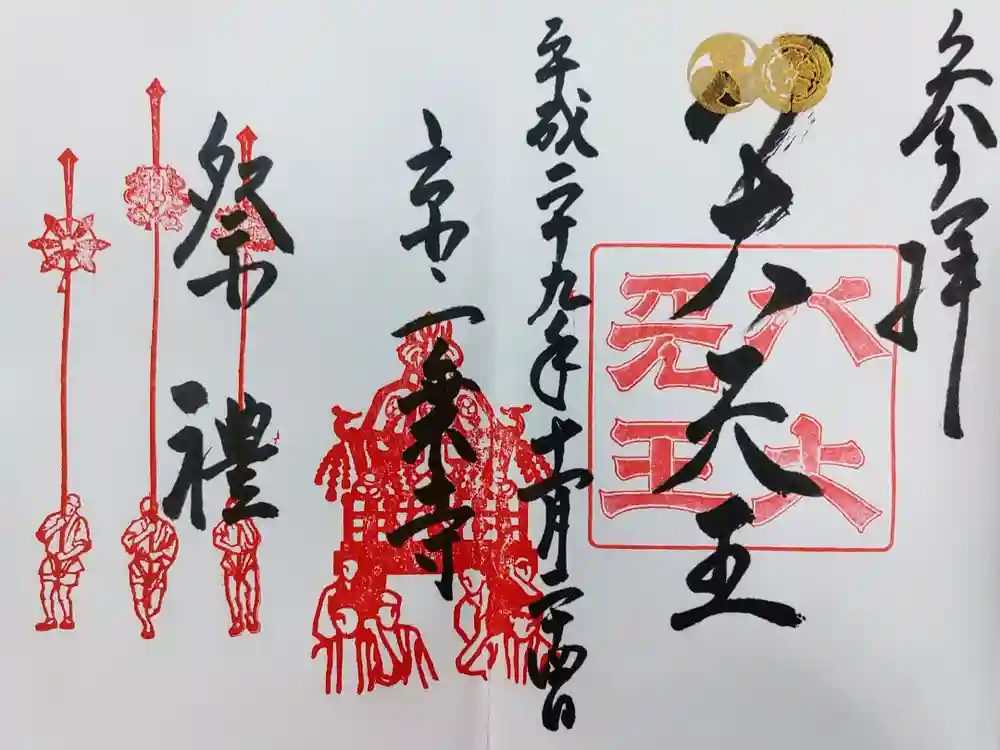 参拝
八大天王
八大天王
平成二十九年十一月二十四日
京、一乗寺
祭禮